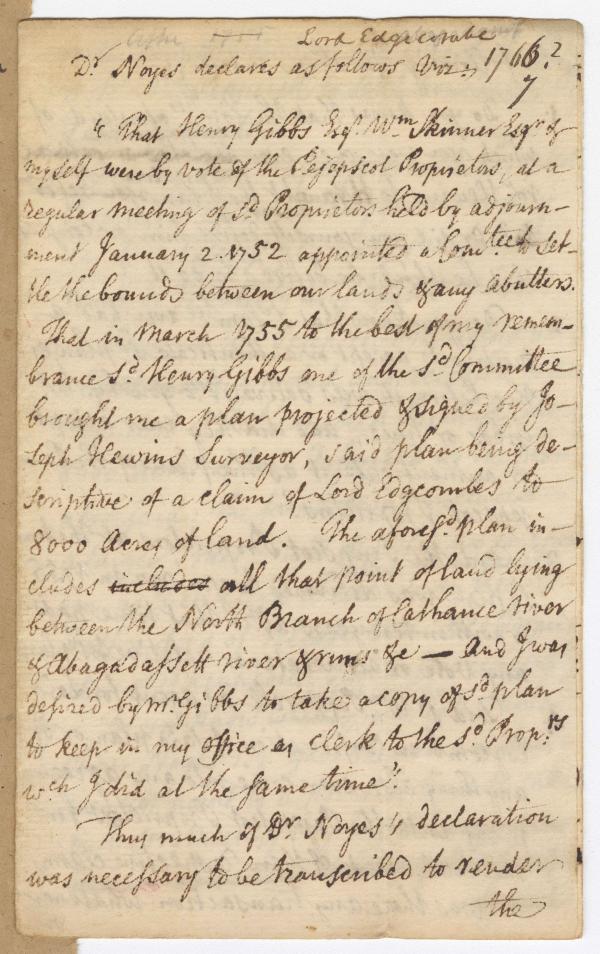 Lord Edgecombe
Dr. Noyes declares as follows Viz: 1766?
7
"That Henry Gibbs Esqr. Wm. Skinner Esqr &
myself were by vote of the Pejepscot Proprietors, at a
regular meeting of sd. Proprietors held by adjourn-
ment January 2. 1752 appointed a Comtee. to set-
tle the bounds between our lands & any abutters.
That in March 1755 to the best of my remem-
brance sd. Henry Gibbs one of the sd. Committee
brought me a plan projected & signed by Jo-
seph Hewins Surveyor, said plan being de-
scriptive of a claim of Lord Edgcombes to
8000 Acres of land. The aforesd. plan in-
cludes includes all that point of land lying
between the North Branch of Cathance river
& Abagadassett river & runs &c — And I was
desired by Mr Gibbs to take a copy of sd. plan
to keep in my office as clerk to the sd. Proprs.
wch I did at the same time".
Thus much of Dr. Noyes's declaration
was necessary to be transcribed to render
the